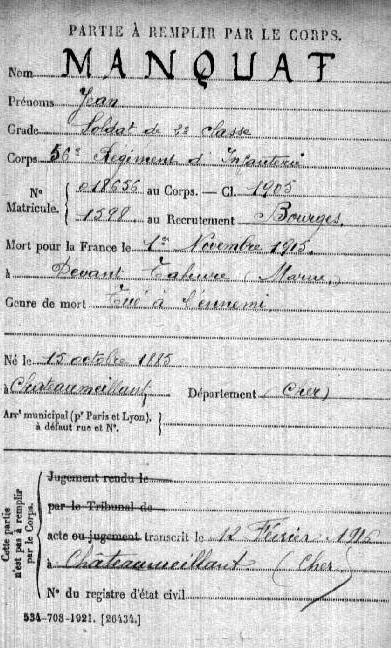 PARTIE À REMPLIR PAR LE CORPS.
Nom MANQUAT
Prénoms Jean
Grade Soldat de 2e classe
Corps 56e Régiment d'Infanterie
N° Matricule. { 018656 au Corps. — Cl. 1905
1598 au Recrutement Bourges.
Mort pour la France le 1er Novembre 1915.
à Devant Tahure (Marne)
Genre de mort Tué à l'ennemi.
Né le 15 octobre 1885
à Chateaumeillant Département (Cher)
Arrt municipal (pr Paris et Lyon), à défaut rue et N°. }
Cette partie n'est pas à remplir par le Corps.
Jugement rendu le
par le Tribunal de
acte ou jugement transcrit le 12 Février 1916
à Châteaumeillant (Cher)
N° du registre d'état civil
534-708-1921. [26434.]